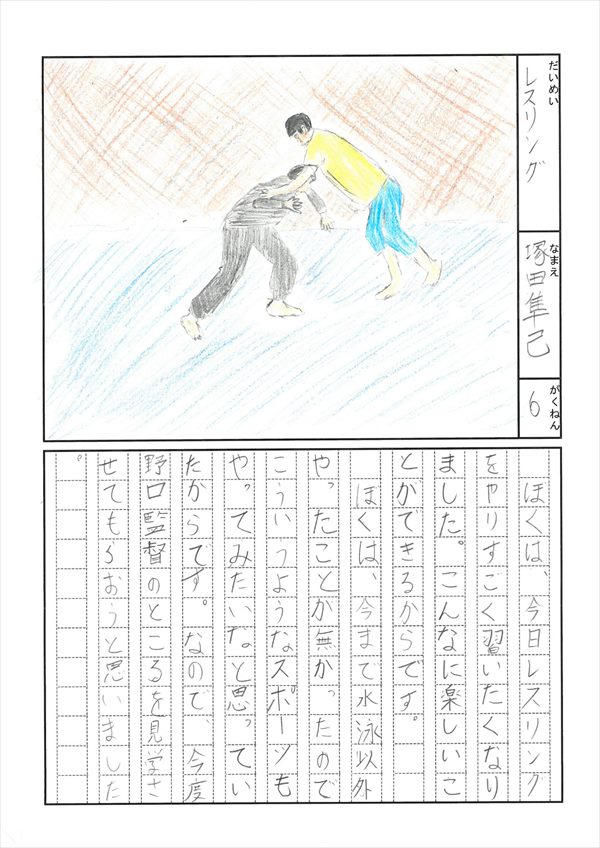 だいめい
レスリング
なまえ
塚田隼己
がくねん
6
ぼくは、今日レスリング
をやりすごく習いたくなり
ました。こんなに楽しいこ
とができるからです。
ぼくは、今まで水泳以外
やったことが無かったので
こういうようなスポーツも
やってみたいなと思ってい
たからです。なので、今度
野口監督のところを見学さ
せてもらおうと思いました
。